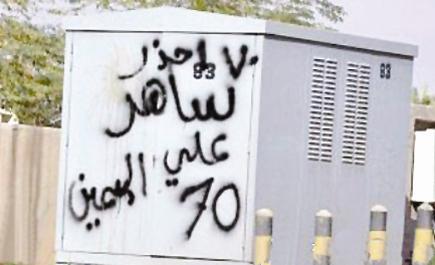 احذر ٧٠
ساهر
علي اليمين
70
83
83